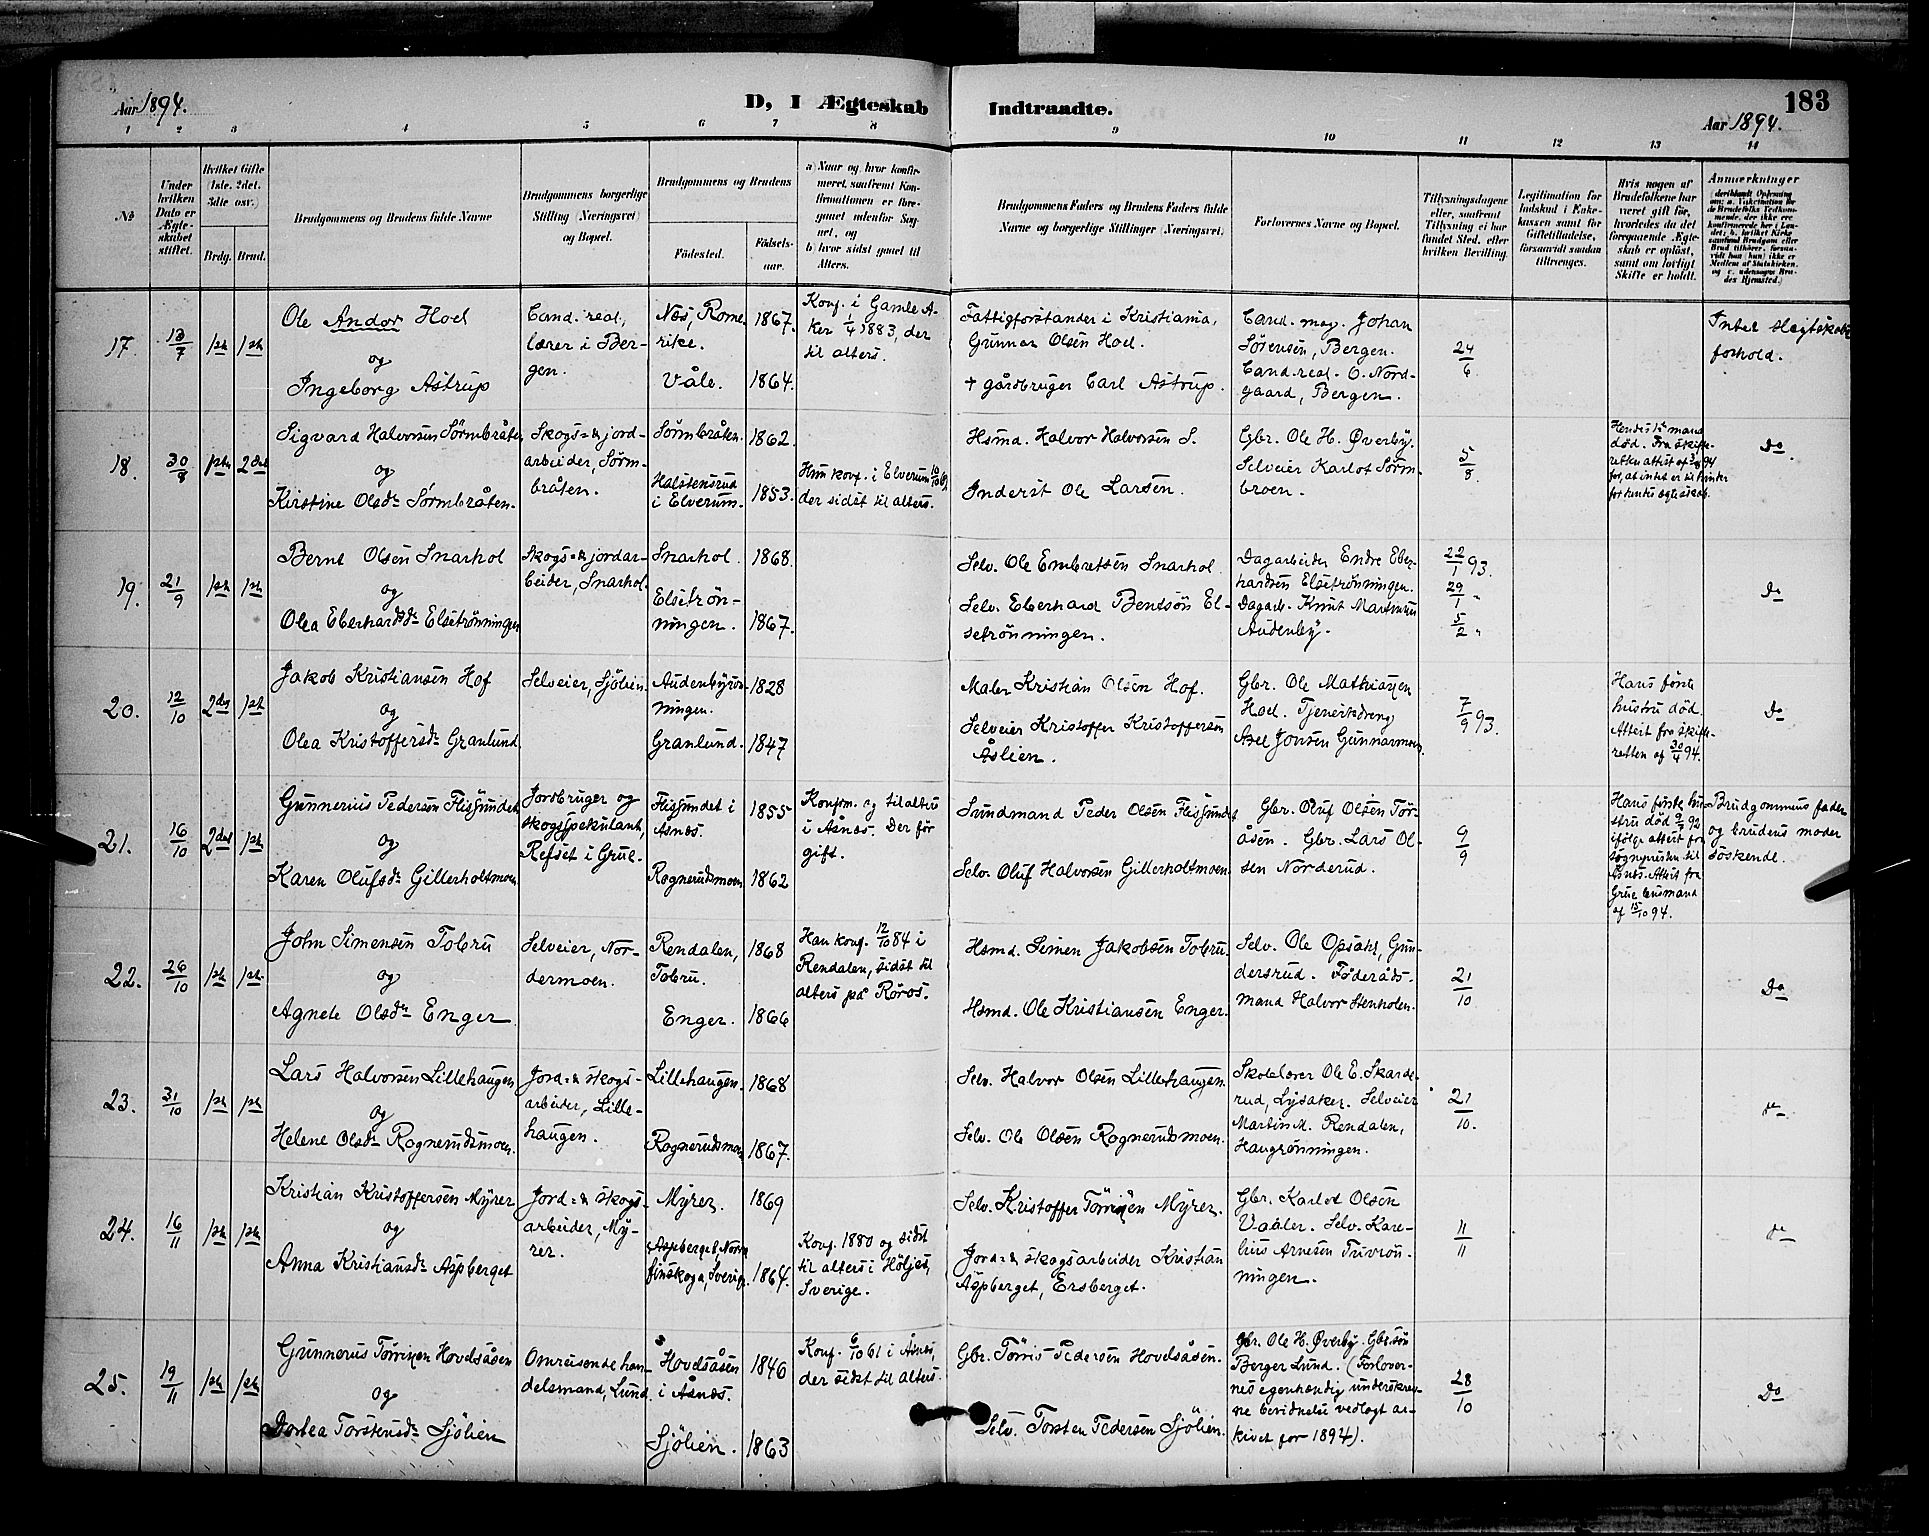 Aar 1894.
D, I Ægteskab Indtraadte.
183
Aar 1894.
1 2 3 4 5 6 7 8 9 10 11 12 13 14
No
Under hvilken Dato er Ægteskabet stiftet.
Hvilket Gifte (1ste. 2det. 3die osv.)
Brdg. Brud.
Brudgommens og Brudens fulde Navne
Brudgommens borgerlige Stilling (Næringsvei) og Bopæl.
Brudgommens og Brudens
Fødested.
Fødselsaar.
a) Naar og hvor konfirmeret, saafremt Konfirmationen er foregaaet udenfor Sognet, og
b) hvor sidst gaaet til Alters.
Brudgommens Faders og Brudens Faders fulde Navne og borgerlige Stillinger (Næringsvei).
Forlovernes Navne og Bopæl.
Tillysningsdagene eller, saafremt Tillysning ei har fundet Sted, efter hvilken Bevilling.
Legitimation for Indskud i Enkekassen samt for Giftetilladelse, forsaavidt saadan tiltrænges.
Hvis nogen af Brudefolkene har været gift før, hvorledes da det foregaaende Ægteskab er opløst, samt om lovligt Skifte er holdt.
Anmærkninger
17. 13/7 1ste 1ste
Ole Andor Hoel
og
Ingeborg Astrup
Cand. real,
lærer i Bergen.
Næs, Romerike. 1867.
Våle. 1864.
Konf. i Gamle Aker 1/4 1883, der
til alters.
Fattigforstander i Kristiania,
Gunnar Olsen Hoel.
† gårdbruger Carl Astrup.
Cand. mag. Johan
Sørensen, Bergen.
Cand. real. O. Nordgaard, Bergen.
24/6
Intet slegtskabs
forhold.
18. 30/8 1ste 2det
Sigvard Halvorsen Sörmbråten
og
Kirstine Olsdr Sörmbråten.
Skogs- & jordarbeider, Sörmbråten.
Sörmbråten. 1862.
Halstensrud
i Elverum. 1853.
Hun konf. i Elverum
der sidst til alters.
Hsmd. Halvor Halvorsen S.
Inderst Ole Larsen.
Gbr. Ole H. Øverby.
Selveier Karlot Sörmbroen.
5/8
Hendes 1ste mand
død. Fra skifteretten attest af
for, at intet er til hinder
for hendes ægteskab.
Do.
19. 21/9 1ste 1ste
Bernt Olsen Snarhol
og
Olea Eberhardsdr Elsetrönningen
Skogs- & jordarbeider, Snarhol.
Snarhol. 1868.
Elsetrönningen. 1867.
Selv. Ole Embretsen Snarhol
Selv. Eberhard Bentsön Elsetrönningen.
Dagarbeider Endre Eberhardsen Elsetrönningen.
Dagarb. Knut Martinsen
Audenby.
22/1 93.
29/1 "
5/2 "
Do
20. 12/10 2det 1ste
Jakob Kristiansen Hof
og
Olea Kristoffersdr Granlund
Selveier, Sjölien.
Audenbyrönningen. 1828
Granlund. 1847
Maler Kristian Olsen Hof.
Selveier Kristoffer Kristoffersen
Åslien.
Gbr. Ole Mathiassen
Hoel. Tjenestedreng
Axel Jonsen Gunnarmoen.
7/9 93.
Hans første
hustru død.
Attest fra skifteretten af 30/4 94.
Do
21. 16/10 2det 1ste
Gunnerius Pedersen Flisjundet
og
Karen Olufsdr Gillerholtmoen
Jordbruger og
skogsspekulant,
Refset i Grue.
Flisjundet i
Åsnæs. 1855
Rognerudsmoen 1862
Konfirm. og til alters
i Åsnæs. Der før
gift.
Sundmand Peder Olsen Flisjundet
Selv. Oluf Halvorsen Gillerholtmoen.
Gbr. Oluf Olsen Toråsen. Gbr. Lars Olsen Norderud.
9/9
Hans første hustru død 9/7 92
ifølge attest fra
sognepresten til
Åsnes. Attest fra
Grue lensmand
af 15/10 94.
Brudgommens fader
og brudens moder
söskende.
22. 26/10 1ste 1ste
John Simensen Tobru
og
Agnete Olsdr Enger
Selveier, Nordermoen.
Rendalen,
Tobru. 1868
Enger. 1866
Han konf. 12/10 84 i
Rendalen, sidst til
alters på Röros.
Hsmd. Simen Jakobsen Tobru.
Hsmd. Ole Kristiansen Enger.
Selv. Ole Opsahl, Gundersrud. Föderådsmand Halvor Stenholen.
21/10
Do
23. 31/10 1ste 1ste
Lars Halvorsen Lillehaugen
og
Helene Olsdr Rognerudsmoen.
Jord- & skogsarbeider, Lillehaugen.
Lillehaugen. 1868
Rognerudsmoen 1867.
Selv. Halvor Olsen Lillehaugen.
Selv. Ole Olsen Rognerudsmoen.
Skolelærer Ole E. Skarderud, Lysaker. Selveier
Martin M. Rendalen,
Haugrönningen.
21/10.
24. 16/11 1ste 1ste
Kristian Kristoffersen Myrer
og
Anna Kristiansdr Aspberget
Jord- & skogsarbeider, Myrer.
Myrer. 1869
Aspberget, Norra
finskoga, Sverige. 1864.
Konf. 1880 og sidst
til alters i Höljes,
Sverige.
Selv. Kristoffer Törrisen Myrer.
Jord- & skogsarbeider Kristian
Aspberget, Ersberget.
Gbr. Karlot Olsen
Vaaler. Selv. Karelius Arnesen Trivrönningen.
11/11
25. 19/11 1ste 1ste
Gunnerus Törrisen Hovdsåsen
og
Dortea Torstensdr Sjölien
Omreisende handelsmand, Lund.
Hovdsåsen
i Åsnæs. 1846
Sjölien. 1863
Konf. 6/10 61 i Åsnes,
der sidst til alters.
Gbr. Törris Pedersen Hovdsåsen.
Selv. Torsten Pedersen Sjölien.
Gbr. Ole H. Øverby. Gbr.sön
Berger Lund. (Forlovernes egenhændig underskrevne bevidnelse vedlagt arkivet for 1894).
28/10
Do